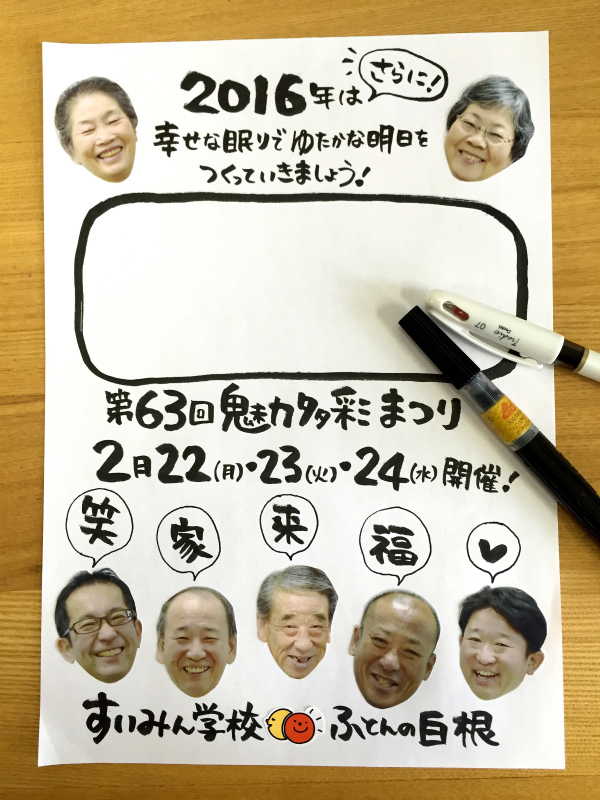 さらに!
2016年は
幸せな眠りでゆたかな明日を
つくっていきましょう!
第63回魅力多彩まつり
2月22(月)・23(火)・24(水)開催!
笑 家 来 福 ♥
すいみん学校 ふとんの白根
Tradio
Pentel
07